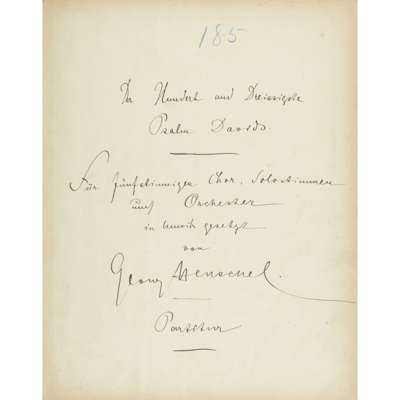 185
Der Hundert und Dreissigste
Psalm Davids
Für fünfstimmigen Chor, Solostimmen
und Orchester
in Musik gesetzt
von
Georg Henschel.
Partitur